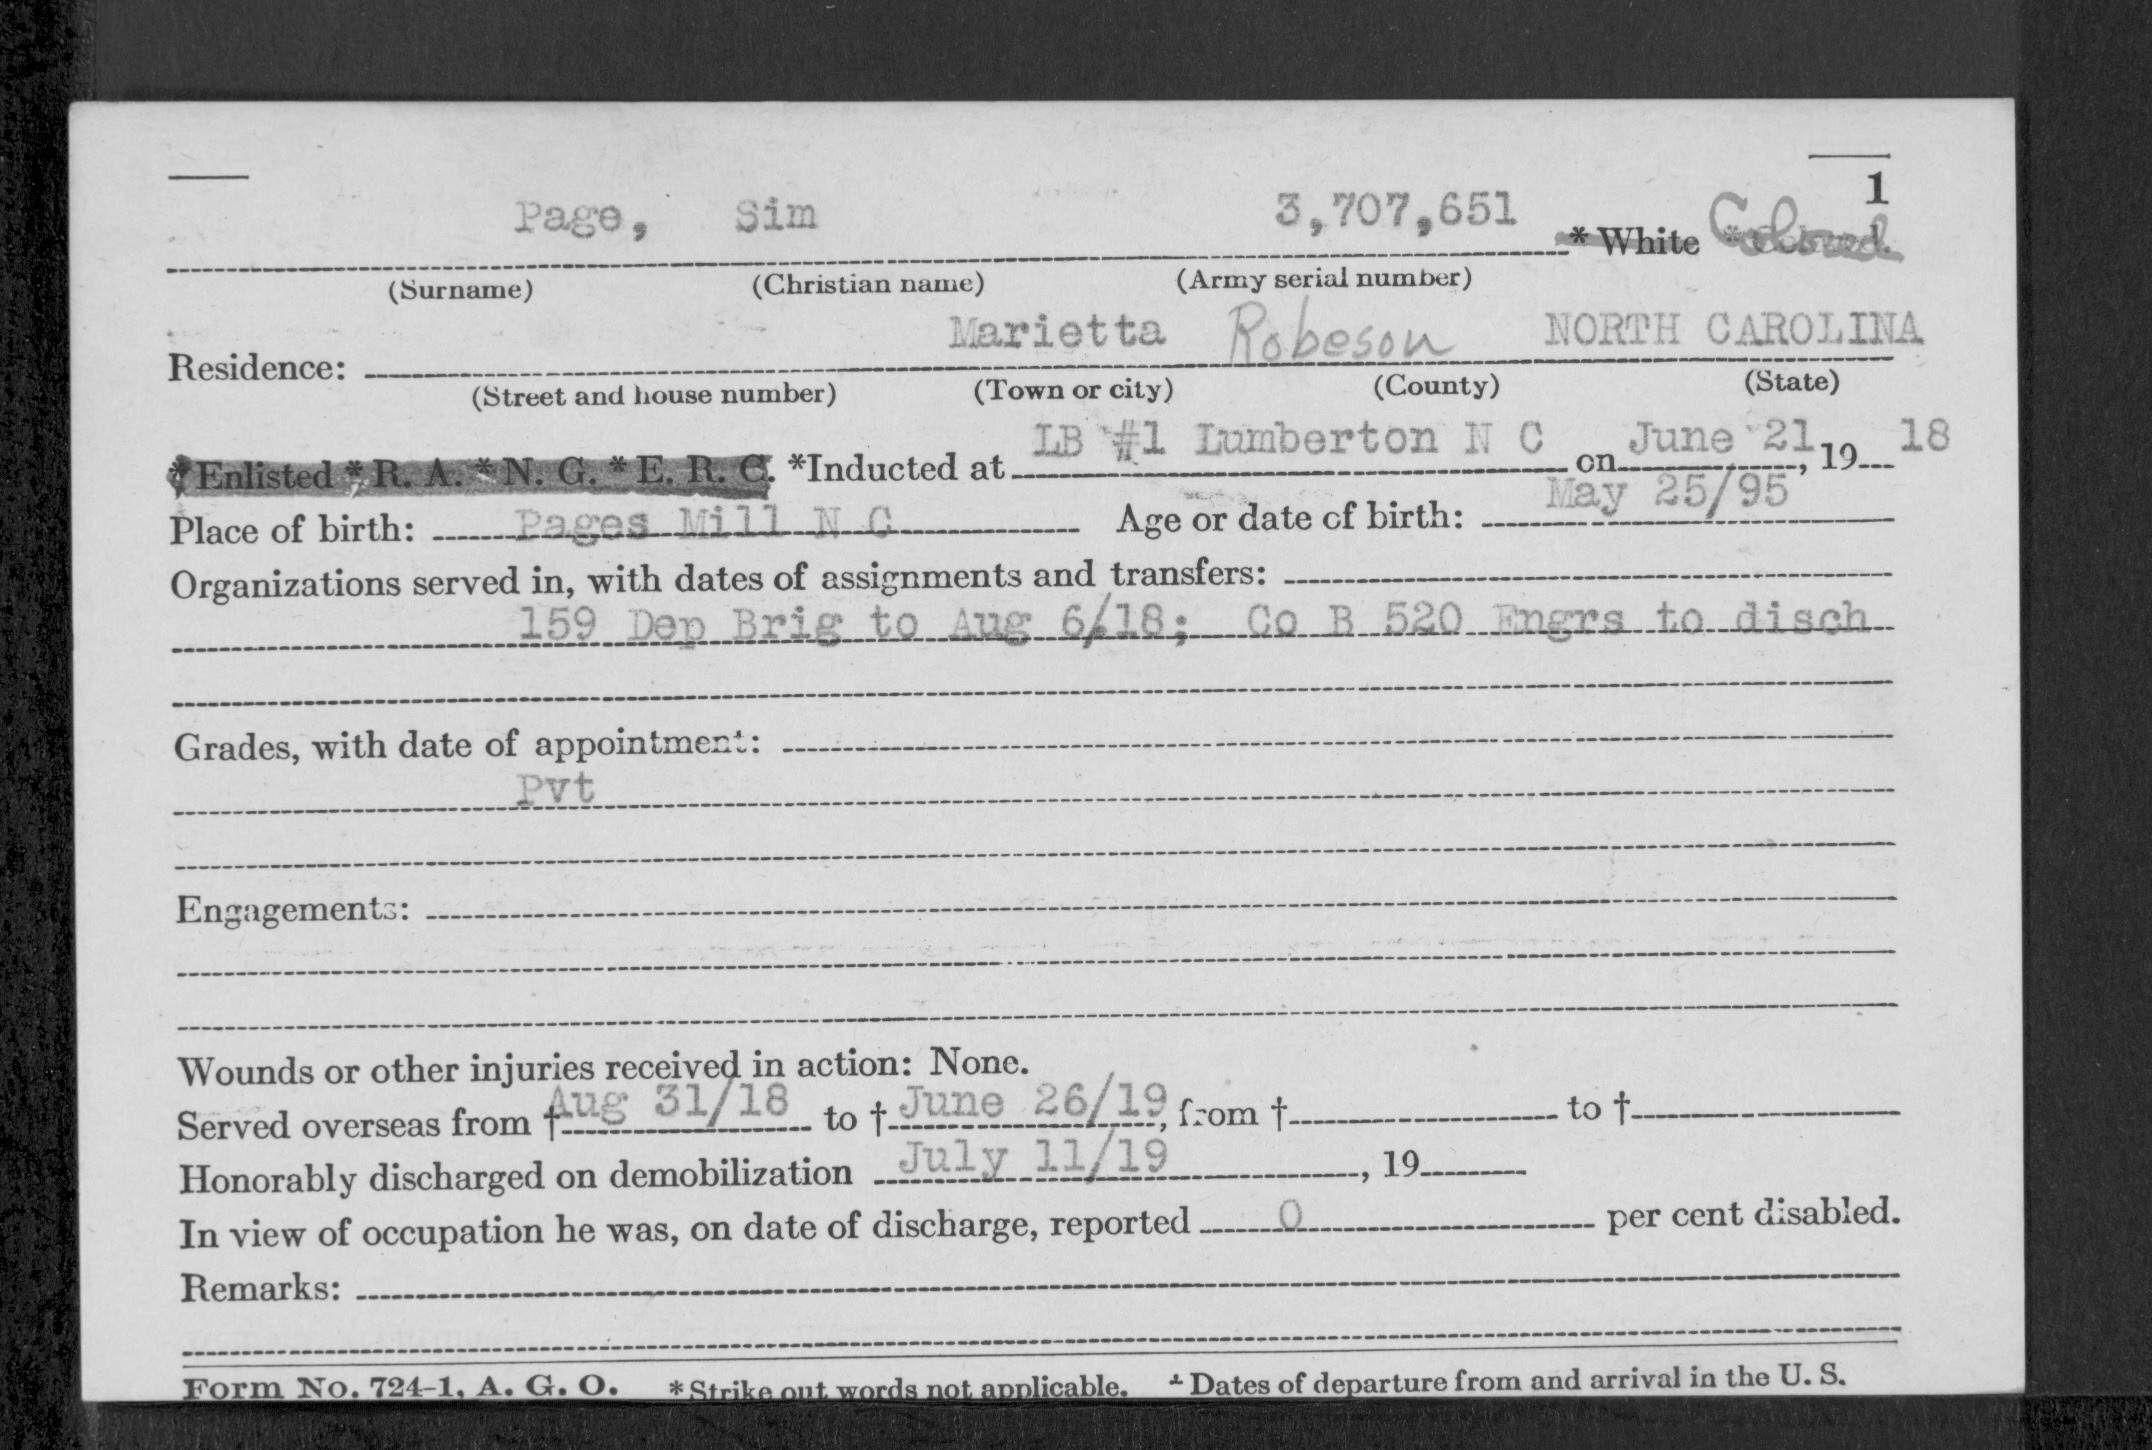 1
Page, Sim 3,707,651 * White * Colored. Colored
(Surname) (Christian name) (Army serial number)
Marietta Robeson NORTH CAROLINA
Residence:
(Street and house number) (Town or city) (County) (State)
LB #1 Lumberton N C June 21 18
* Enlisted * R. A. * N. G. * E. R. C. *Inducted at on , 19
Place of birth: Pages Mill N C Age or date of birth: May 25/95
Organizations served in, with dates of assignments and transfers:
159 Dep Brig to Aug 6/18; Co B 520 Engrs to disch
Grades, with date of appointment:
Pvt
Engagements:
Wounds or other injuries received in action: None.
Served overseas from † Aug 31/18 to † June 26/19, from † to †
Honorably discharged on demobilization July 11/19, 19
In view of occupation he was, on date of discharge, reported 0 per cent disabled.
Remarks:
Form No. 724-1, A. G. O. * Strike out words not applicable. † Dates of departure from and arrival in the U. S.